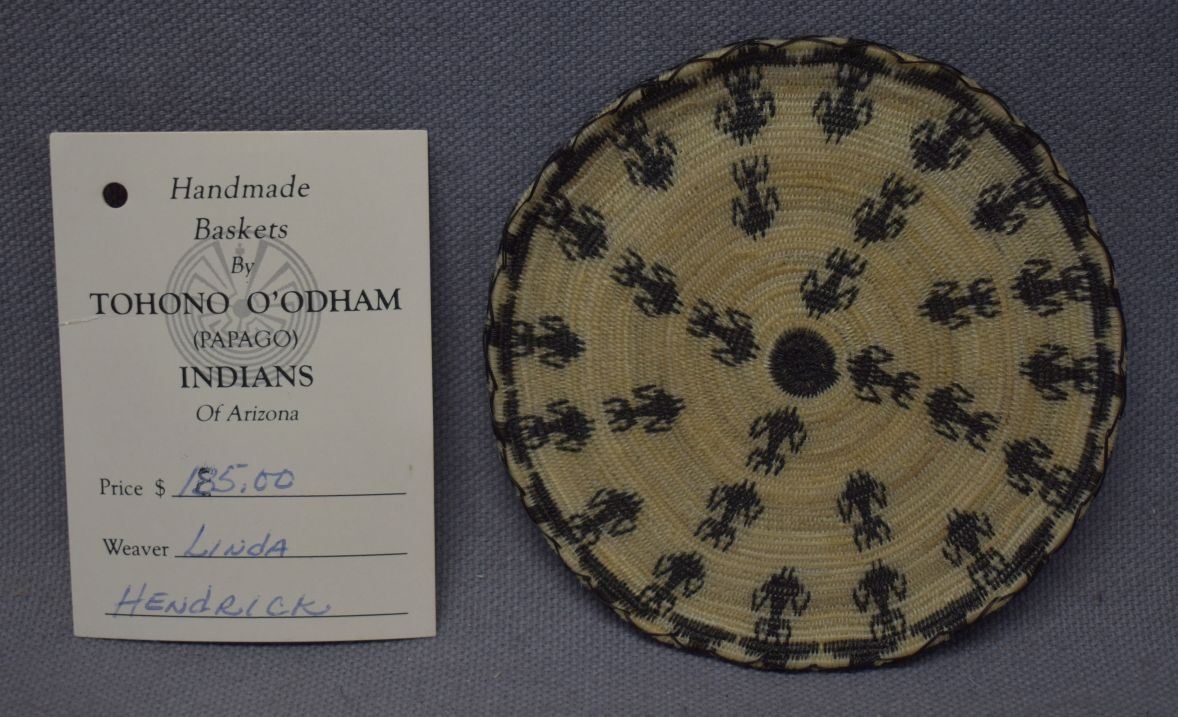 Handmade
Baskets
By
TOHONO O'ODHAM
(PAPAGO)
INDIANS
Of Arizona
Price $ 185.00
Weaver LINDA
HENDRICK